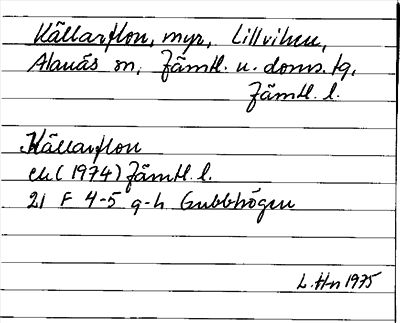 Källarflon, myr, Lillviken,
Alanäs sn, Jämtl. n. doms. tg,
Jämtl. l.
Källarflon
ek (1974) Jämtl. l.
21 F 4-5 g-h Gubbhögen
L. Hn 1975